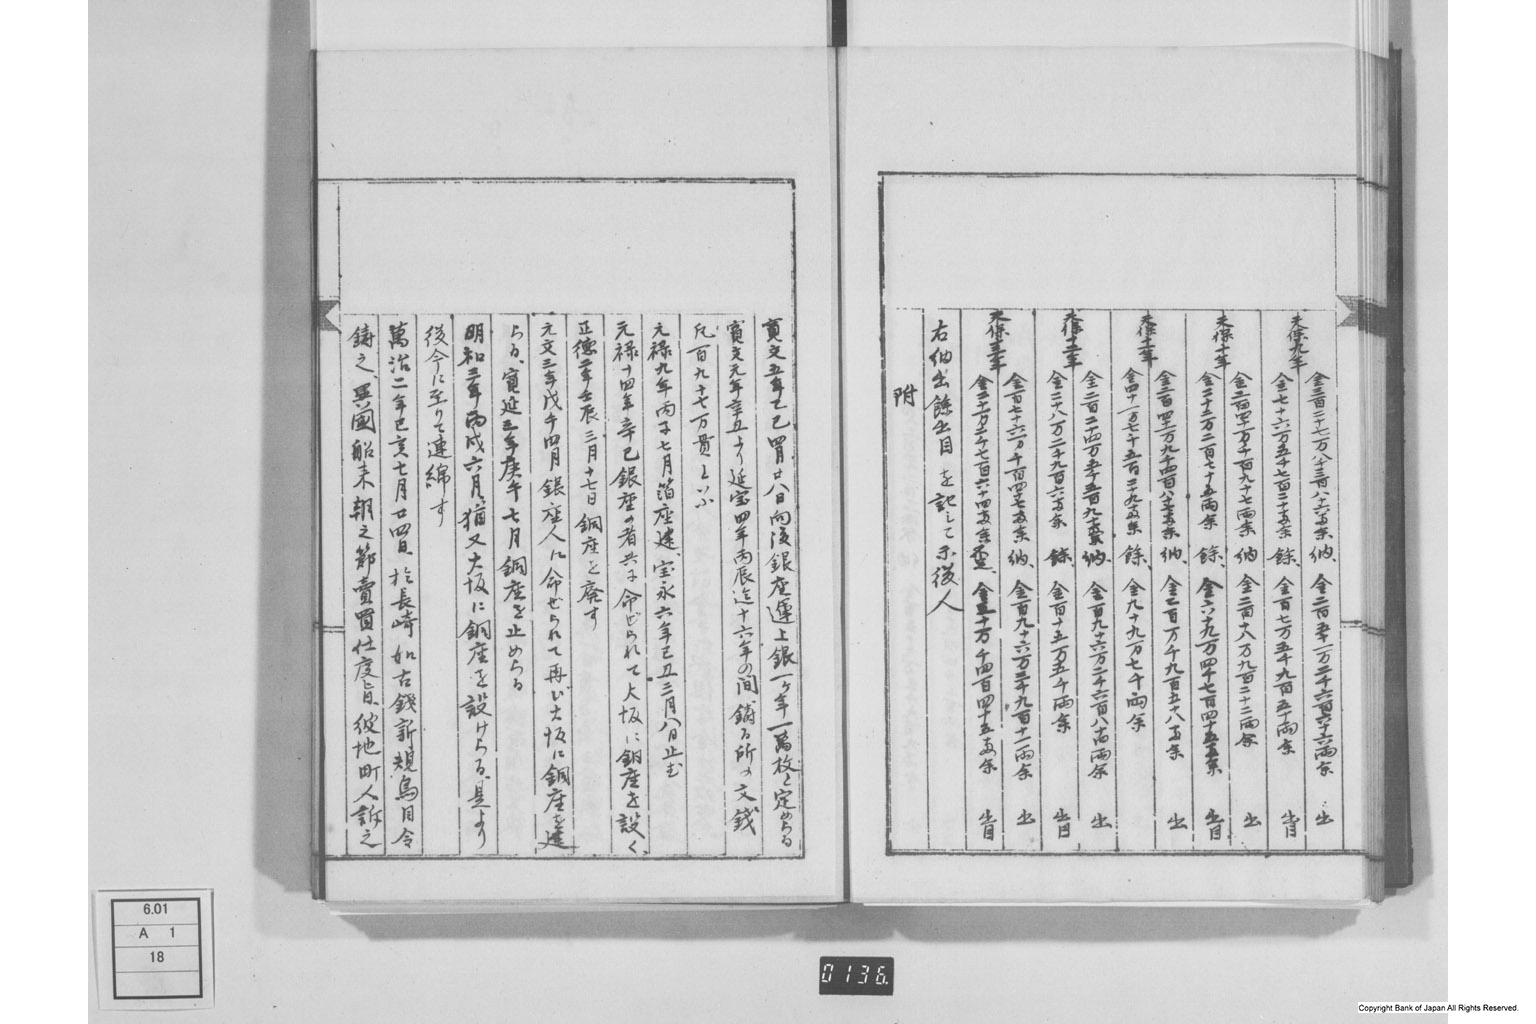 天保九年
金三百二十七万八千三百八十六両余 納、金二百五十一万二千六百六十六両余 出
金七十六万五千七百二十両余 餘、金百七万五千九百五十両余 出目
天保十年
金二百四十一万千百九十七両余 納 金二百十八万九百二十二両余 出
金二十二万二百七十五両余 餘、金六十九万四千七百四十五両余 出目
天保十一年
納、出
金四十一万七千五百二十九両余 餘、金九十九万七千両余
天保十二年
納、金百九十六万二千六百八十両余 出
金二十八万二千九百六両余 餘、金百十五万五千両余 出目
天保十三年
納、金百九十六万二千九百十一両余 出
金五十万千四百四十五両余 出目
右納出餘出目を記して示後人
附
寛文五年乙巳四月廿八日向後銀座運上銀一ヶ年一萬枚と定めらる
寛文元年辛丑より延宝四年丙辰迄十六年の間鋳る所の文銭
凡百九十七万貫といふ
元禄九年丙子七月箔座建、宝永六年己丑三月八日止む
元禄十四年辛巳銀座の者共に命ぜられて大坂に銅座を設く、
正徳二年壬辰三月十七日銅座を廃す
元文三年戊午四月銀座人に命ぜられて再び大坂に銅座を建
らる、寛延三年庚午七月銅座を止めらる
明和三年丙戌六月、猶又大坂に銅座を設けらる、是より
後今に至りて連綿す
萬治二年己亥七月廿四日、於長崎如古錢新規鳥目令
鋳之、異國船来朝之節賣買仕度旨、彼地町人訴之
6.01
A 1
18
0136
Copyright Bank of Japan All Rights Reserved.